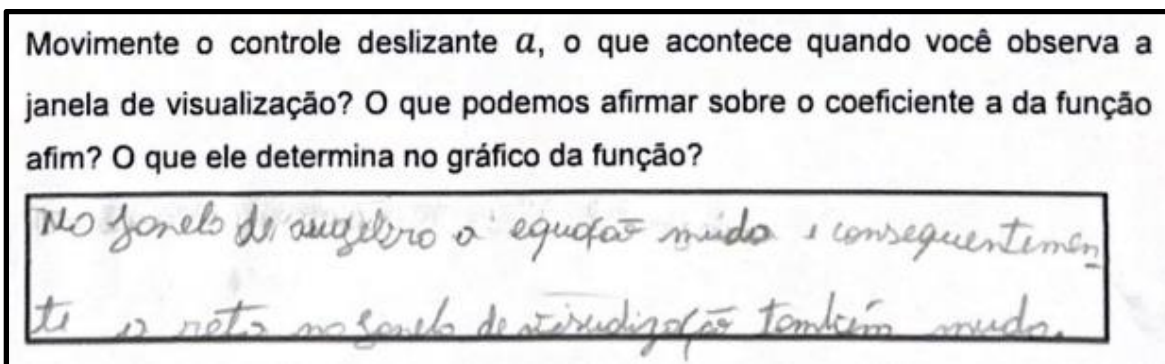 Movimente o controle deslizante a, o que acontece quando você observa a
janela de visualização? O que podemos afirmar sobre o coeficiente a da função
afim? O que ele determina no gráfico da função?
Na janela de a equação muda e consequentemen
te a reta na janela de visualização também muda.